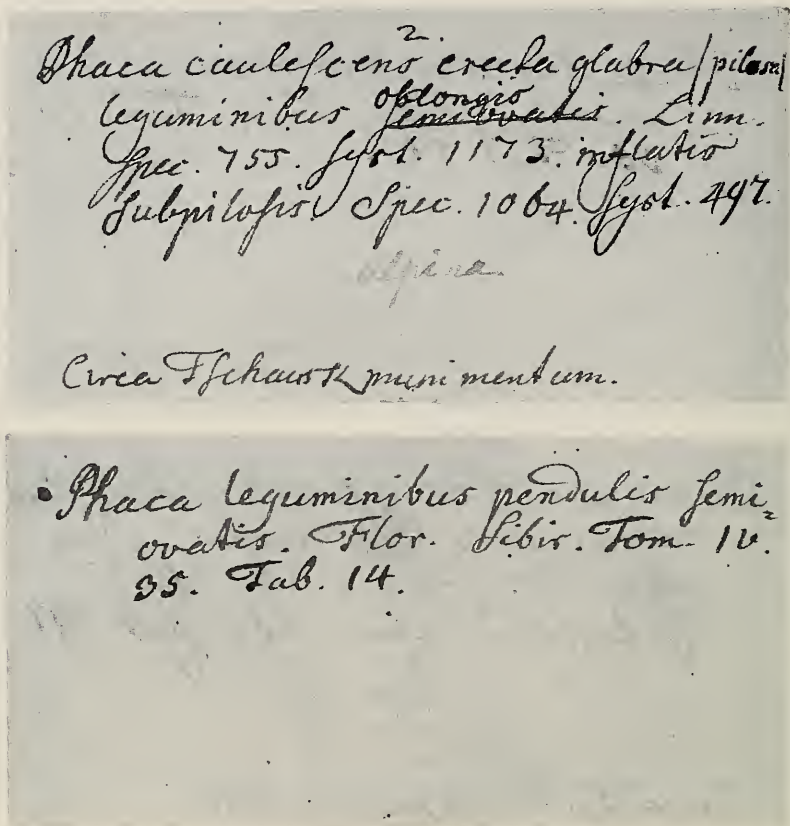 2.
Phaca caulescens erecta glabra/pilosa/
leguminibus oblongis semiovatis. Linn.
Spec. 755. Syst. 1173. inflatis
subpilosis. Spec. 1064. Syst. 497.
alpina.
Circa Tschausk munimentum.
Phaca leguminibus pendulis semi=
ovatis. Flor. Sibir. Tom. IV.
35. Tab. 14.